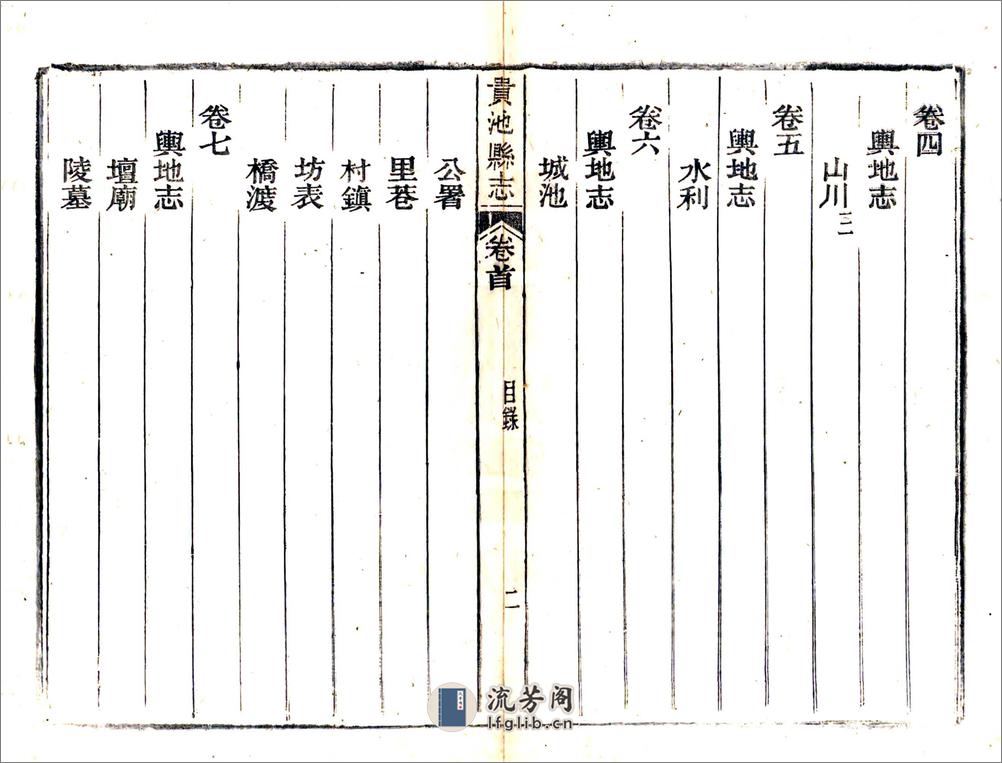 卷四
輿地志
山川二
卷五
輿地志
水利
卷六
輿地志
城池
貴池縣志
卷首
目錄
二
公署
里巷
村鎮
坊表
橋渡
卷七
輿地志
壇廟
陵墓
流芳阁
lfglib.cn